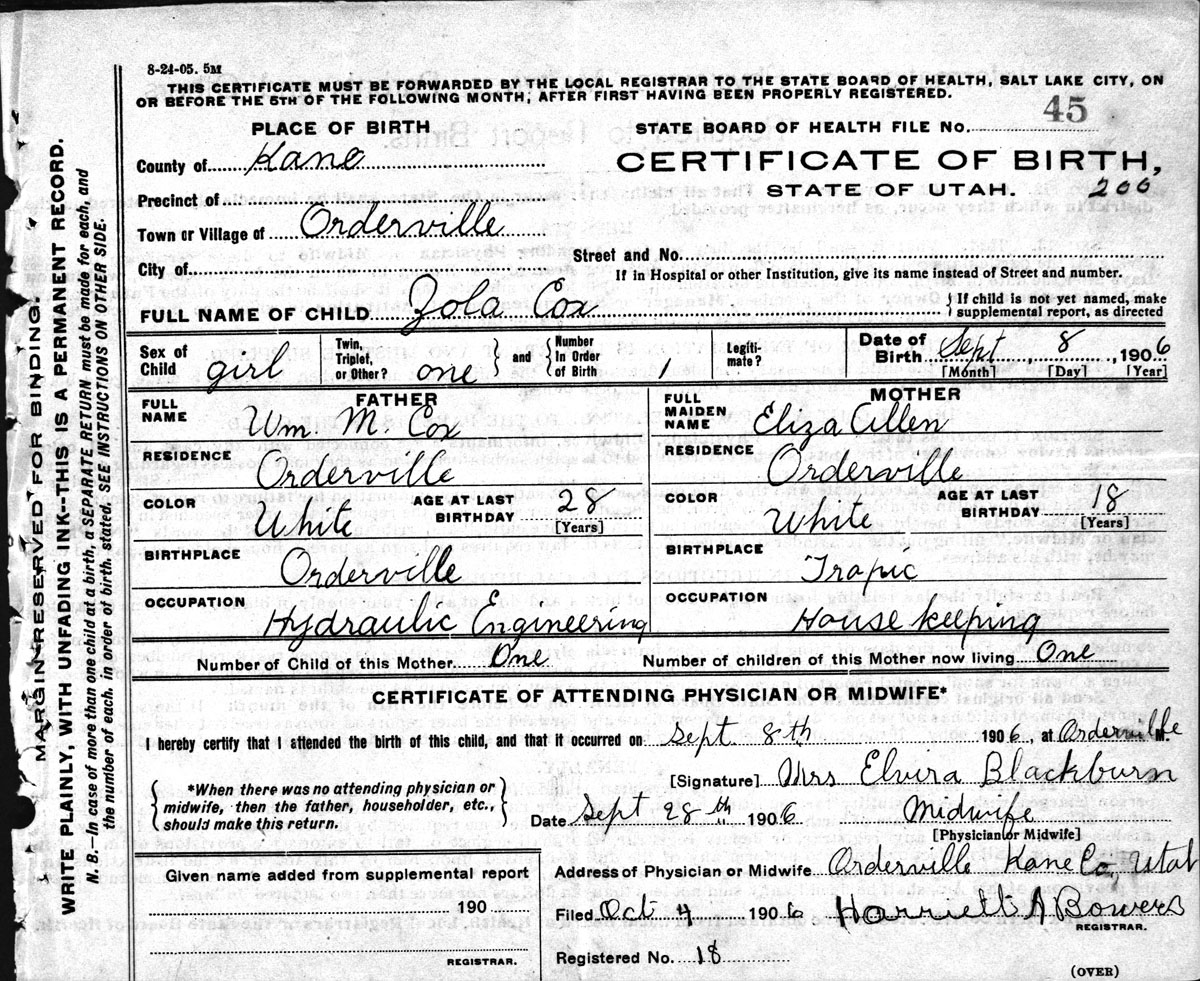 8-24-05. 5M
THIS CERTIFICATE MUST BE FORWARDED BY THE LOCAL REGISTRAR TO THE STATE BOARD OF HEALTH, SALT LAKE CITY, ON
OR BEFORE THE 5TH OF THE FOLLOWING MONTH, AFTER FIRST HAVING BEEN PROPERLY REGISTERED.
MARGIN RESERVED FOR BINDING.
WRITE PLAINLY, WITH UNFADING INK--THIS IS A PERMANENT RECORD.
N. B.—In case of more than one child at a birth, a SEPARATE RETURN must be made for each, and
the number of each, in order of birth, stated. SEE INSTRUCTIONS ON OTHER SIDE.
PLACE OF BIRTH
STATE BOARD OF HEALTH FILE No. 45
County of Kane
CERTIFICATE OF BIRTH,
STATE OF UTAH. 200
Precinct of
Town or Village of Orderville
Street and No.
City of
If in Hospital or other Institution, give its name instead of Street and number.
FULL NAME OF CHILD Zola Cox
If child is not yet named, make
supplemental report, as directed
Sex of Child girl
Twin, Triplet, or Other? one and Number In Order of Birth 1
Legiti- mate?
Date of Birth Sept 8, 1906
[Month] [Day] [Year]
FATHER
FULL NAME Wm. M. Cox
RESIDENCE Orderville
COLOR White AGE AT LAST BIRTHDAY 28 [Years]
BIRTHPLACE Orderville
OCCUPATION Hydraulic Engineering
MOTHER
FULL MAIDEN NAME Eliza Allen
RESIDENCE Orderville
COLOR White AGE AT LAST BIRTHDAY 18 [Years]
BIRTHPLACE Tropic
OCCUPATION House keeping
Number of Child of this Mother One Number of children of this Mother now living One
CERTIFICATE OF ATTENDING PHYSICIAN OR MIDWIFE*
I hereby certify that I attended the birth of this child, and that it occurred on Sept. 8th 1906, at Orderville
[Signature] Mrs Elvira Blackburn
*When there was no attending physician or
midwife, then the father, householder, etc.,
should make this return.
Date Sept 28th 1906 Midwife
[Physician or Midwife]
Given name added from supplemental report
190
REGISTRAR.
Address of Physician or Midwife Orderville Kane Co, Utah
Filed Oct 4 1906 Harriett A Bowers
REGISTRAR.
Registered No. 18
(OVER)